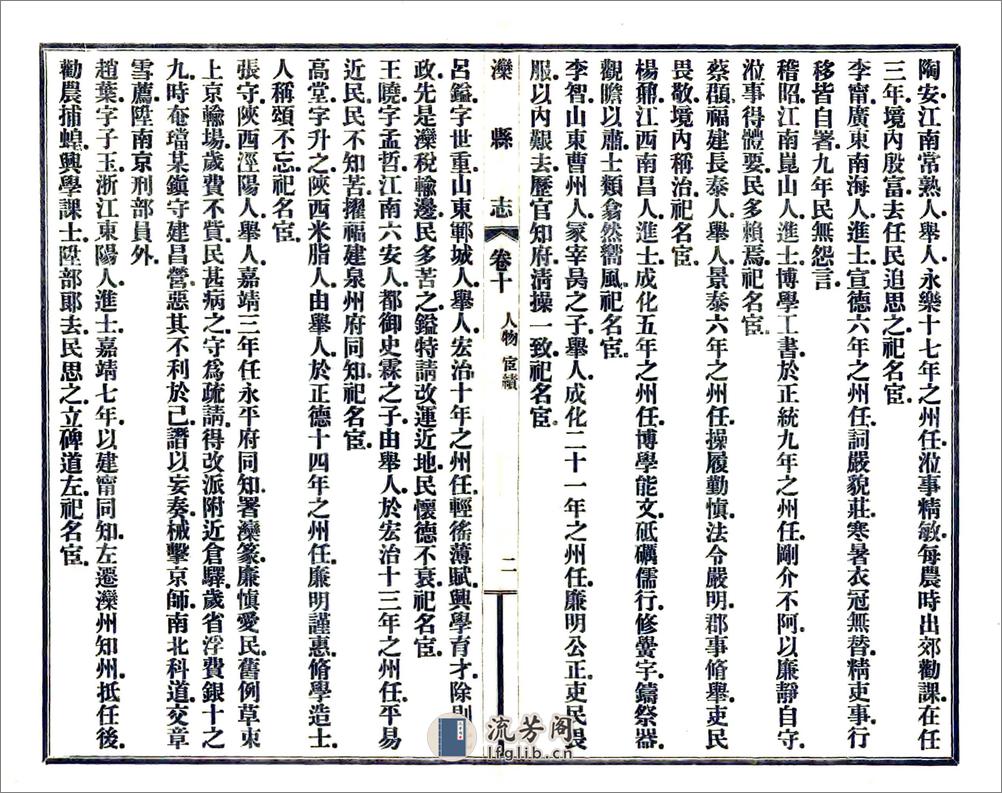 陶安江南常熟人舉人永樂十七年之州任涖事精敏每農時出郊勸課在任
三年境內殷富去任民追思之祀名宦
李甯廣東南海人進士宣德六年之州任詞嚴貌莊寒暑衣冠無替精吏事行
移皆自署九年民無怨言
稽昭江南崑山人進士博學工書於正統九年之州任剛介不阿以廉靜自守
涖事得體要民多賴焉祀名宦
蔡顒福建長泰人舉人景泰六年之州任操履勤慎法令嚴明郡事脩舉吏民
畏敬境內稱治祀名宦
楊鼐江西南昌人進士成化五年之州任博學能文砥礪儒行修黌宇鑄祭器
觀瞻以肅士類翕然嚮風祀名宦
李智山東曹州人冢宰昺之子舉人成化二十一年之州任廉明公正吏民畏
服以內艱去歷官知府淸操一致祀名宦
灤縣志 卷十 人物 宦績 二
呂鎰字世重山東鄆城人舉人宏治十年之州任輕徭薄賦興學育才除則
政先是灤稅輸邊民多苦之鎰特請改運近地民懷德不衰祀名宦
王曉字孟哲江南六安人都御史霖之子由舉人於宏治十三年之州任平易
近民民不知苦擢福建泉州府同知祀名宦
高堂字升之陝西米脂人由舉人於正德十四年之州任廉明謹惠脩學造士
人稱頌不忘祀名宦
張守陝西涇陽人舉人嘉靖三年任永平府同知署灤篆廉慎愛民舊例草束
上京輸場歲費不貲民甚病之守爲疏請得改派附近倉驛歲省浮費銀十之
九時奄璫某鎭守建昌營惡其不利於己譖以妄奏械擊京師南北科道交章
雪薦陞南京刑部員外
趙葉字子玉浙江東陽人進士嘉靖七年以建甯同知左遷灤州知州抵任後
勸農捕蝗興學課士陞部郞去民思之立碑道左祀名宦
流芳阁
lfglib.cn